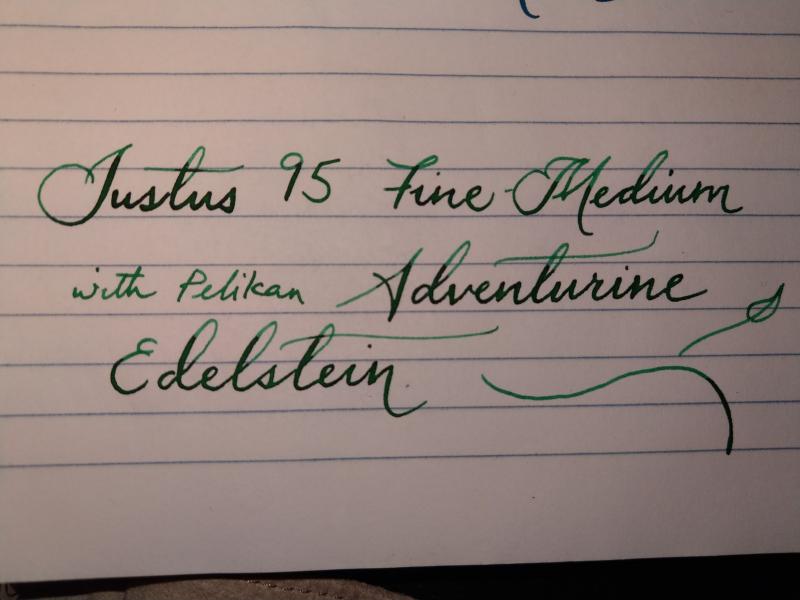 Justus 95 Fine-Medium
with Pelikan Adventurine
Edelstein